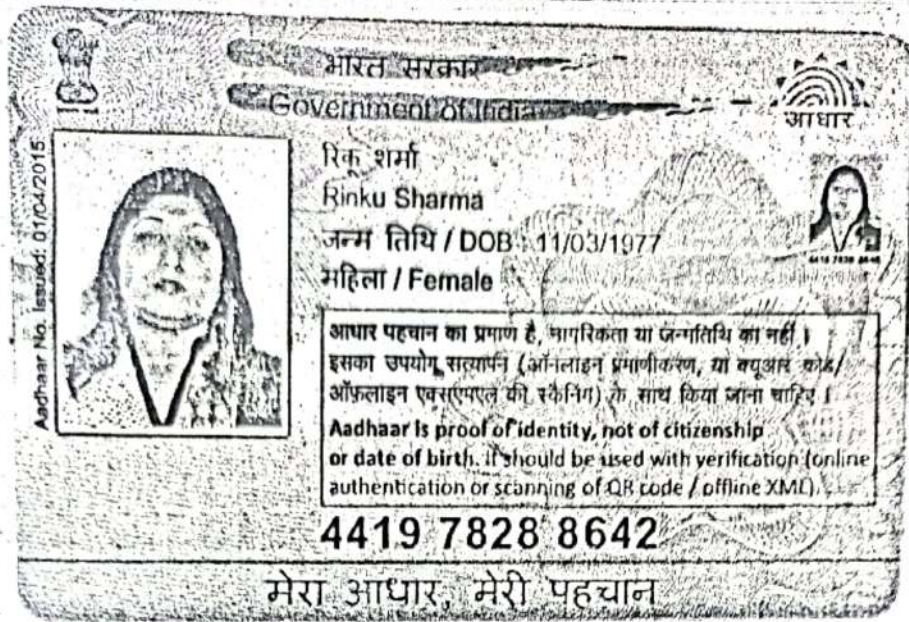 भारत सरकार
Government of India
आधार
Aadhaar No. Issued: 01/04/2015
रिंकू शर्मा
Rinku Sharma
जन्म तिथि / DOB : 11/03/1977
महिला / Female
आधार पहचान का प्रमाण है, नागरिकता या जन्मतिथि का नहीं ।
इसका उपयोग सत्यापन (ऑनलाइन प्रमाणीकरण, या क्यूआर कोड/
ऑफ़लाइन एक्सएमएल की स्कैनिंग) के साथ किया जाना चाहिए ।
Aadhaar is proof of identity, not of citizenship
or date of birth. It should be used with verification (online
authentication or scanning of QR code / offline XML).
4419 7828 8642
मेरा आधार, मेरी पहचान